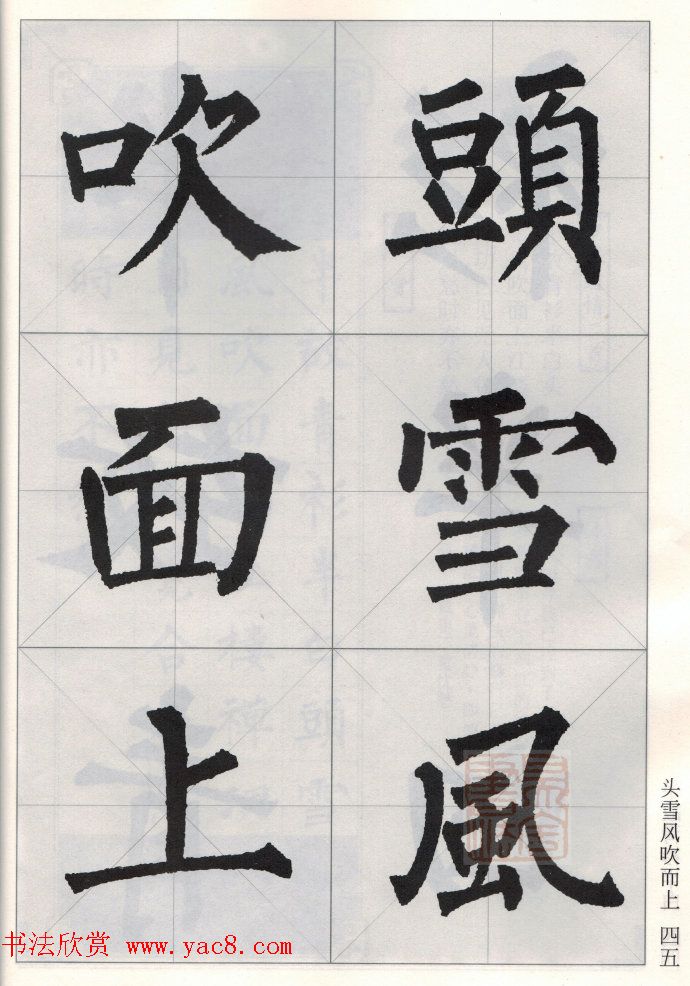 頭雪風
吹面上
头雪风吹而上 四五
书法欣赏 www.yac8.com